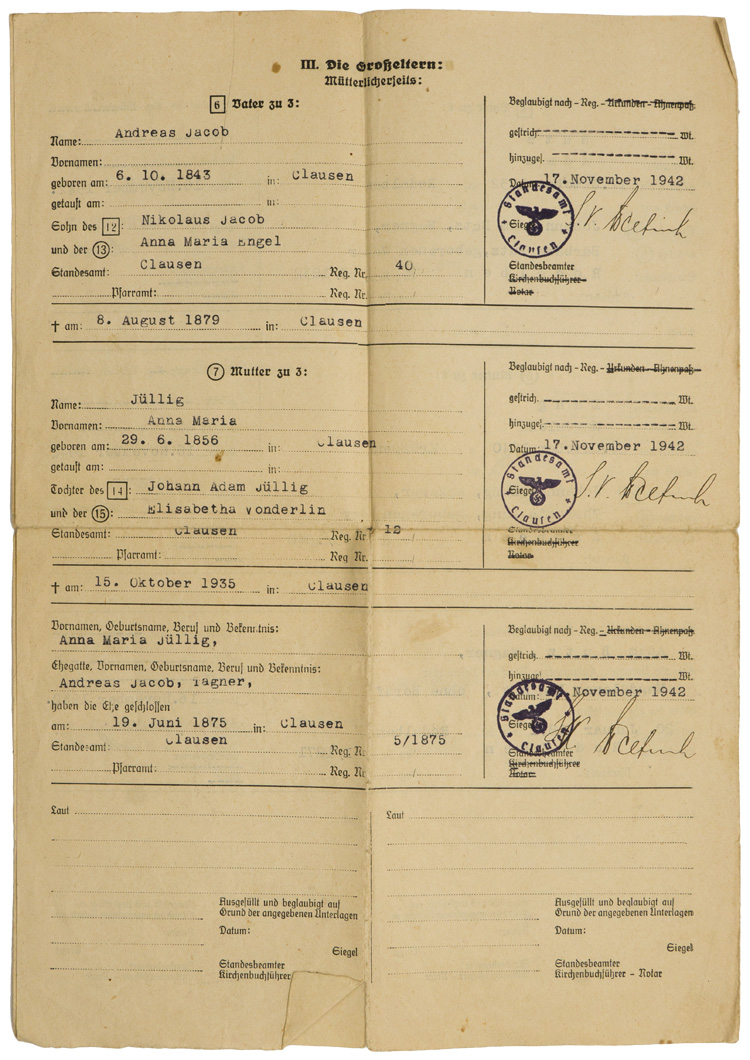 III. Die Großeltern:
Mütterlicherseits:
6 Vater zu 3:
Name: Andreas Jacob
Vornamen:
geboren am: 6. 10. 1843 in: Clausen
getauft am: in:
Sohn des 12: Nikolaus Jacob
und der 13: Anna Maria Engel
Standesamt: Clausen Reg. Nr. 40
Pfarramt: Reg. Nr.
† am: 8. August 1879 in: Clausen
Beglaubigt nach - Reg. - Urkunden - Ahnenpaß.
gestrich. Wt.
hinzugef. Wt.
Datum: 17. November 1942
Siegel
Standesamt Clausen
Standesbeamter
Kirchenbuchführer
Notar
7 Mutter zu 3:
Name: Jüllig
Vornamen: Anna Maria
geboren am: 29. 6. 1856 in: Clausen
getauft am: in:
Tochter des 14: Johann Adam Jüllig
und der 15: Elisabetha Vonderlin
Standesamt: Clausen Reg. Nr. 12
Pfarramt: Reg. Nr.
† am: 15. Oktober 1935 in: Clausen
Beglaubigt nach - Reg. - Urkunden - Ahnenpaß.
gestrich. Wt.
hinzugef. Wt.
Datum: 17. November 1942
Siegel
Standesamt Clausen
Standesbeamter
Kirchenbuchführer
Notar
Vornamen, Geburtsname, Beruf und Bekenntnis:
Anna Maria Jüllig,
Ehegatte, Vornamen, Geburtsname, Beruf und Bekenntnis:
Andreas Jacob, Tagner,
haben die Ehe geschlossen
am: 19. Juni 1875 in: Clausen
Standesamt: Clausen Reg. Nr. 5/1875
Pfarramt: Reg. Nr.
Beglaubigt nach - Reg. - Urkunden - Ahnenpaß.
gestrich. Wt.
hinzugef. Wt.
Datum: November 1942
Siegel
Standesamt Clausen
Standesbeamter
Kirchenbuchführer
Notar
Laut
Ausgefüllt und beglaubigt auf
Grund der angegebenen Unterlagen
Datum:
Siegel
Standesbeamter
Kirchenbuchführer
Laut
Ausgefüllt und beglaubigt auf
Grund der angegebenen Unterlagen
Datum:
Siegel
Standesbeamter
Kirchenbuchführer - Notar